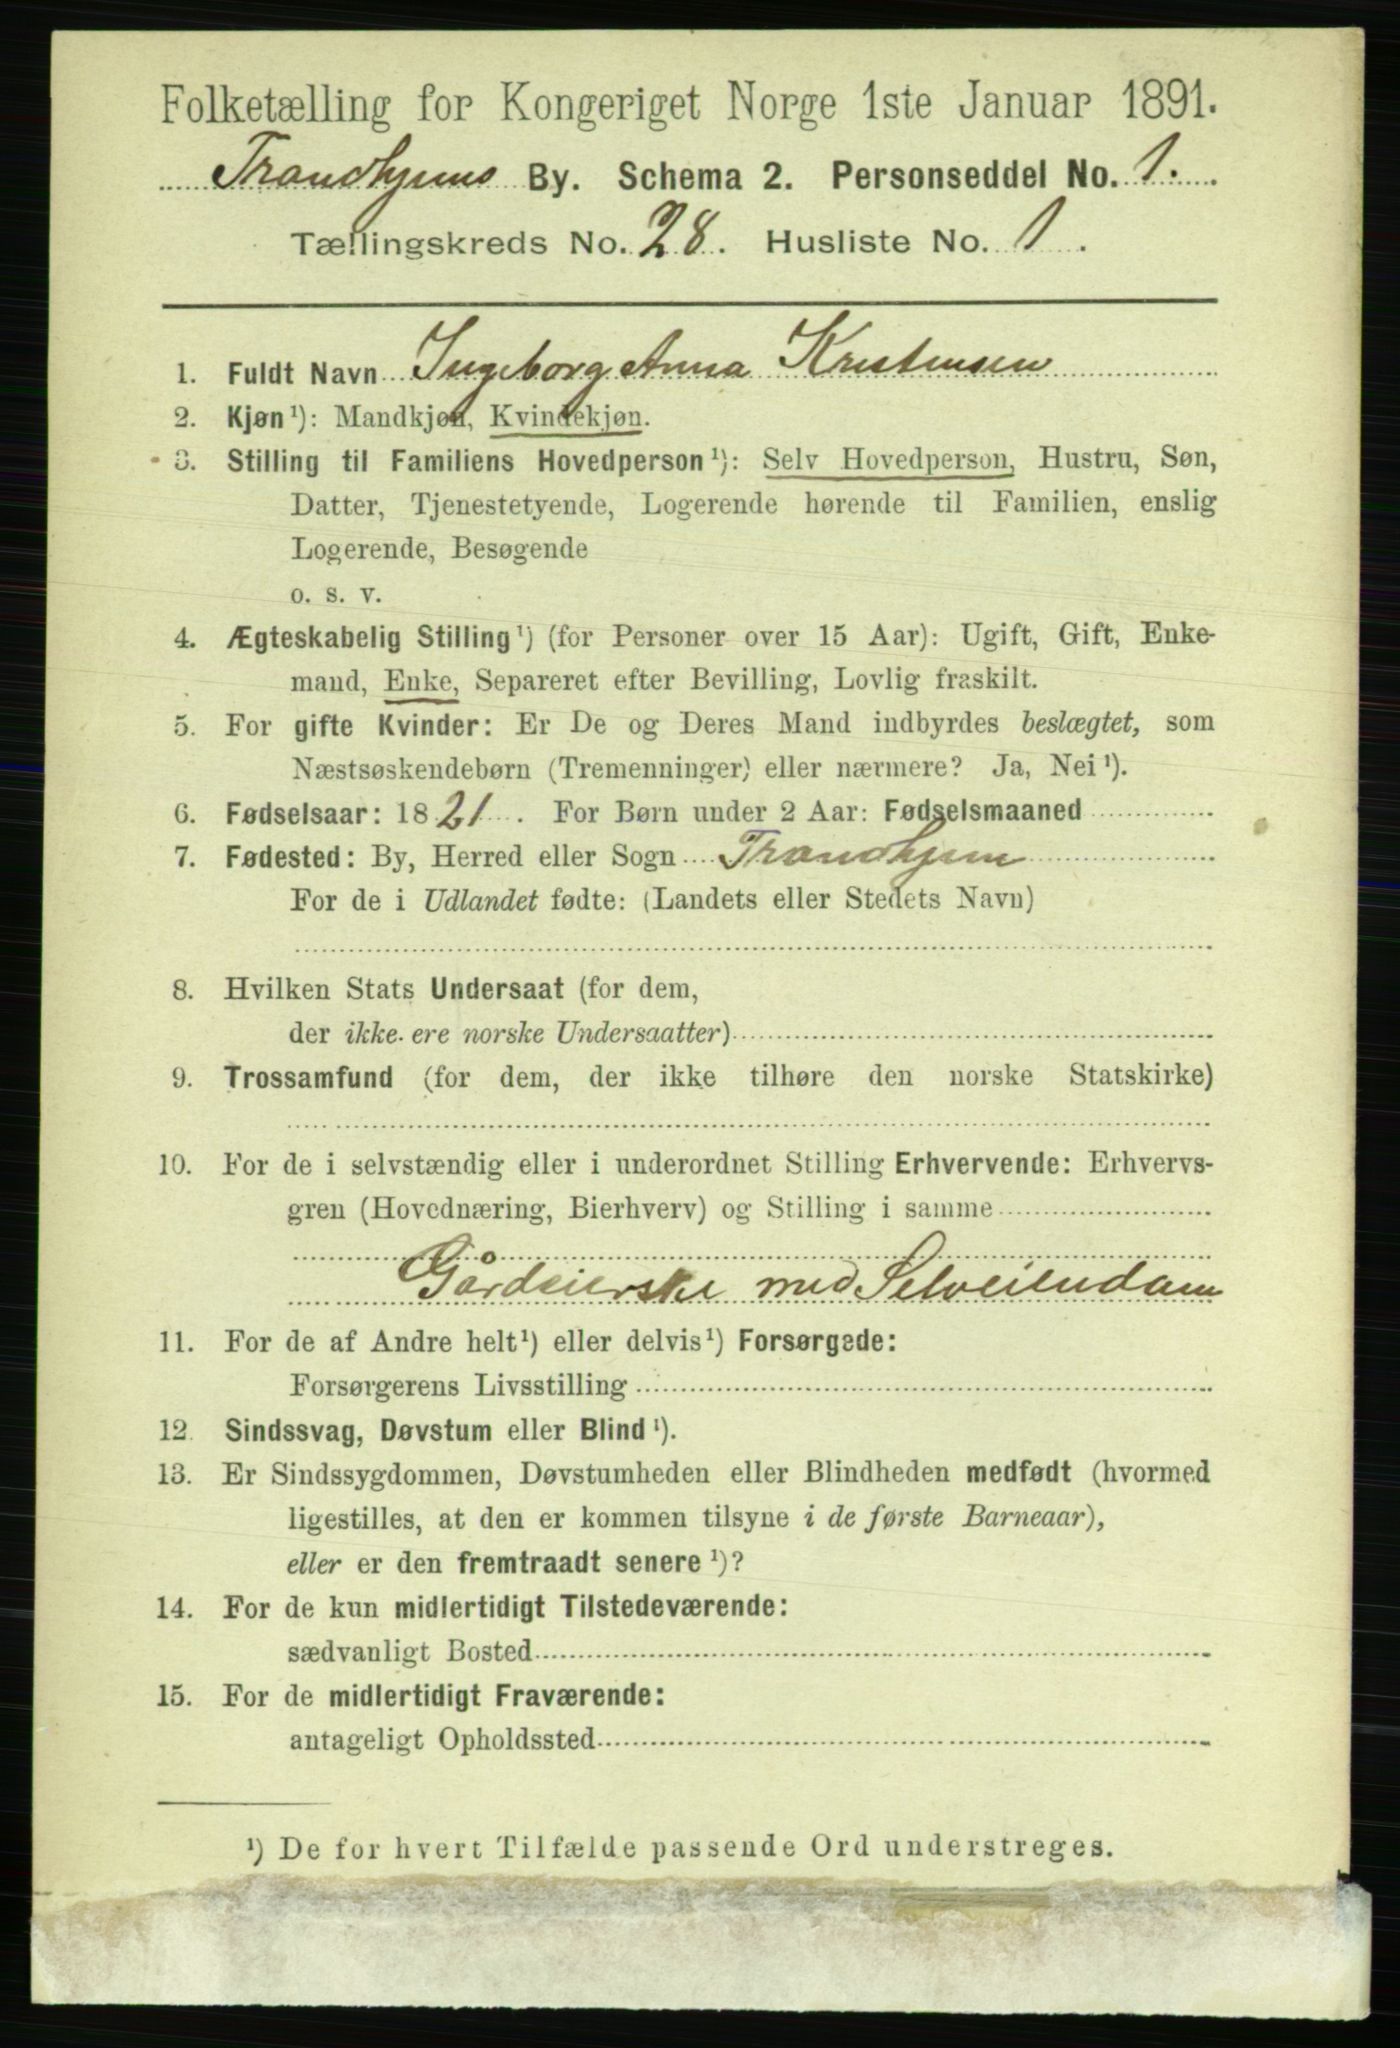 Folketælling for Kongeriget Norge 1ste Januar 1891.
Trondhjems By. Schema 2. Personseddel No. 1.
Tællingskreds No. 28. Husliste No. 1.
1. Fuldt Navn Ingeborg Anna Kristensen
2. Kjøn¹): Mandkjøn, Kvindekjøn.
3. Stilling til Familiens Hovedperson¹): Selv Hovedperson, Hustru, Søn,
Datter, Tjenestetyende, Logerende hørende til Familien, enslig
Logerende, Besøgende
o. s. v.
4. Ægteskabelig Stilling¹) (for Personer over 15 Aar): Ugift, Gift, Enke-
mand, Enke, Separeret efter Bevilling, Lovlig fraskilt.
5. For gifte Kvinder: Er De og Deres Mand indbyrdes beslægtet, som
Næstsøskendebørn (Tremenninger) eller nærmere? Ja, Nei¹).
6. Fødselsaar: 1821. For Børn under 2 Aar: Fødselsmaaned
7. Fødested: By, Herred eller Sogn Trondhjem
For de i Udlandet fødte: (Landets eller Stedets Navn)
8. Hvilken Stats Undersaat (for dem,
der ikke ere norske Undersaatter)
9. Trossamfund (for dem, der ikke tilhøre den norske Statskirke)
10. For de i selvstændig eller i underordnet Stilling Erhvervende: Erhvervs-
gren (Hovednæring, Bierhverv) og Stilling i samme
Gårdeierske med Selveiendom
11. For de af Andre helt¹) eller delvis¹) Forsørgede:
Forsørgerens Livsstilling
12. Sindssvag, Døvstum eller Blind¹).
13. Er Sindssygdommen, Døvstumheden eller Blindheden medfødt (hvormed
ligestilles, at den er kommen tilsyne i de første Barneaar),
eller er den fremtraadt senere¹)?
14. For de kun midlertidigt Tilstedeværende:
sædvanligt Bosted
15. For de midlertidigt Fraværende:
antageligt Opholdssted
¹) De for hvert Tilfælde passende Ord understreges.